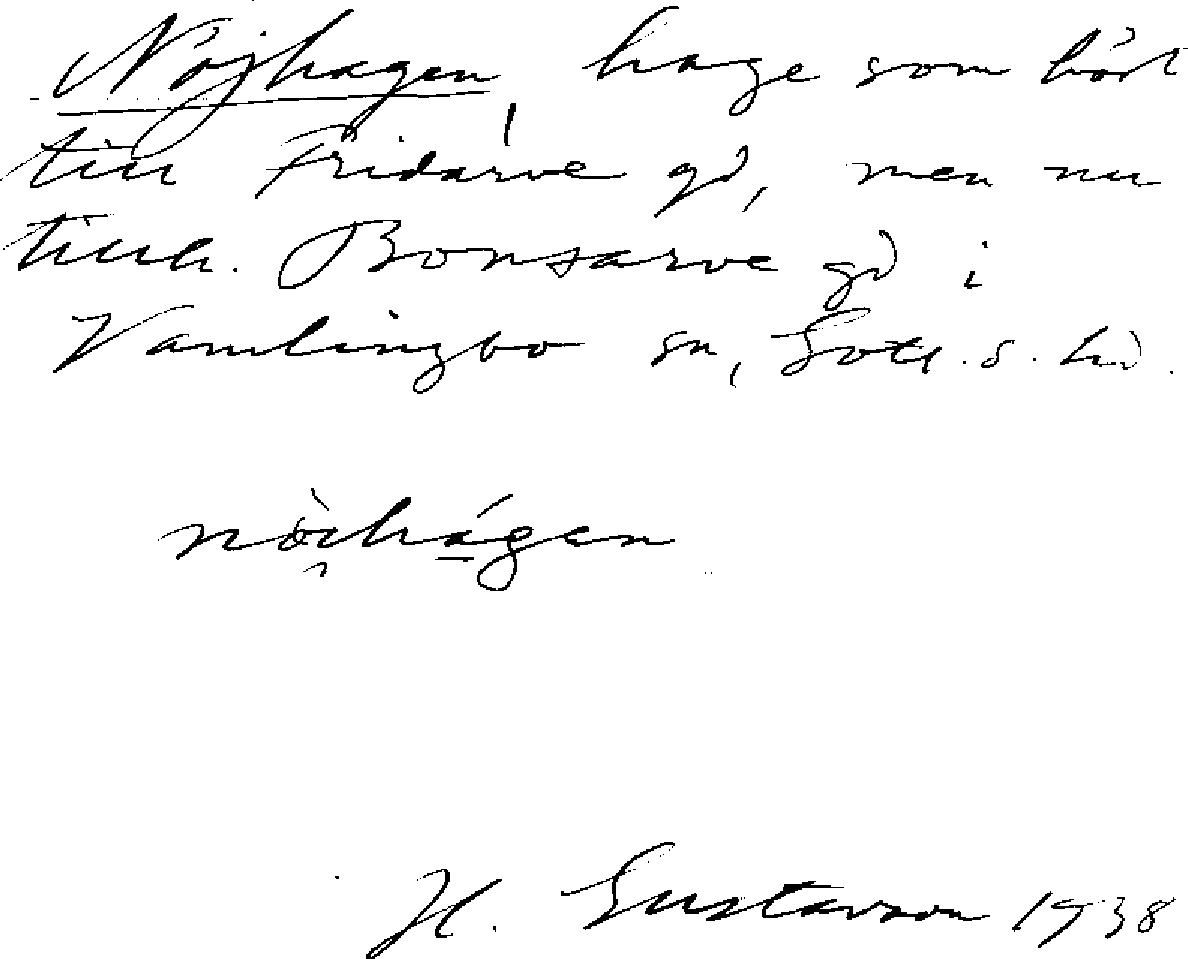 Nöjhagen, hage som hört
till Fridarve gd, men nu
tillh. Bonsarve gd i
Vamlingbo sn, Gotl. s. hd.
nòi̯hágen
H. Gustavson 1938